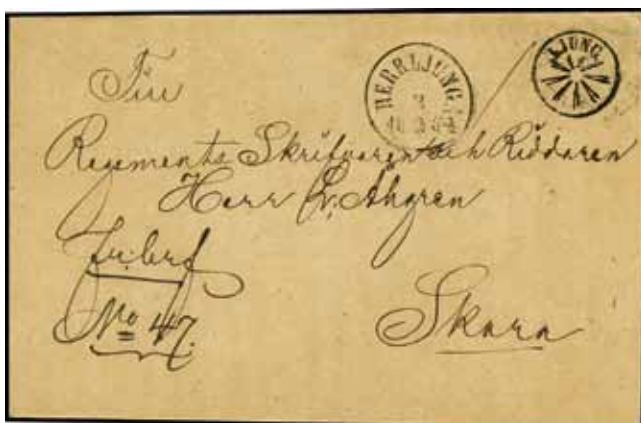 HERRLJUNGA
LJUNG
Till
Regements Skrifvaren och Riddaren
Herr C. Åhgren
fribref
No 47.
Skara